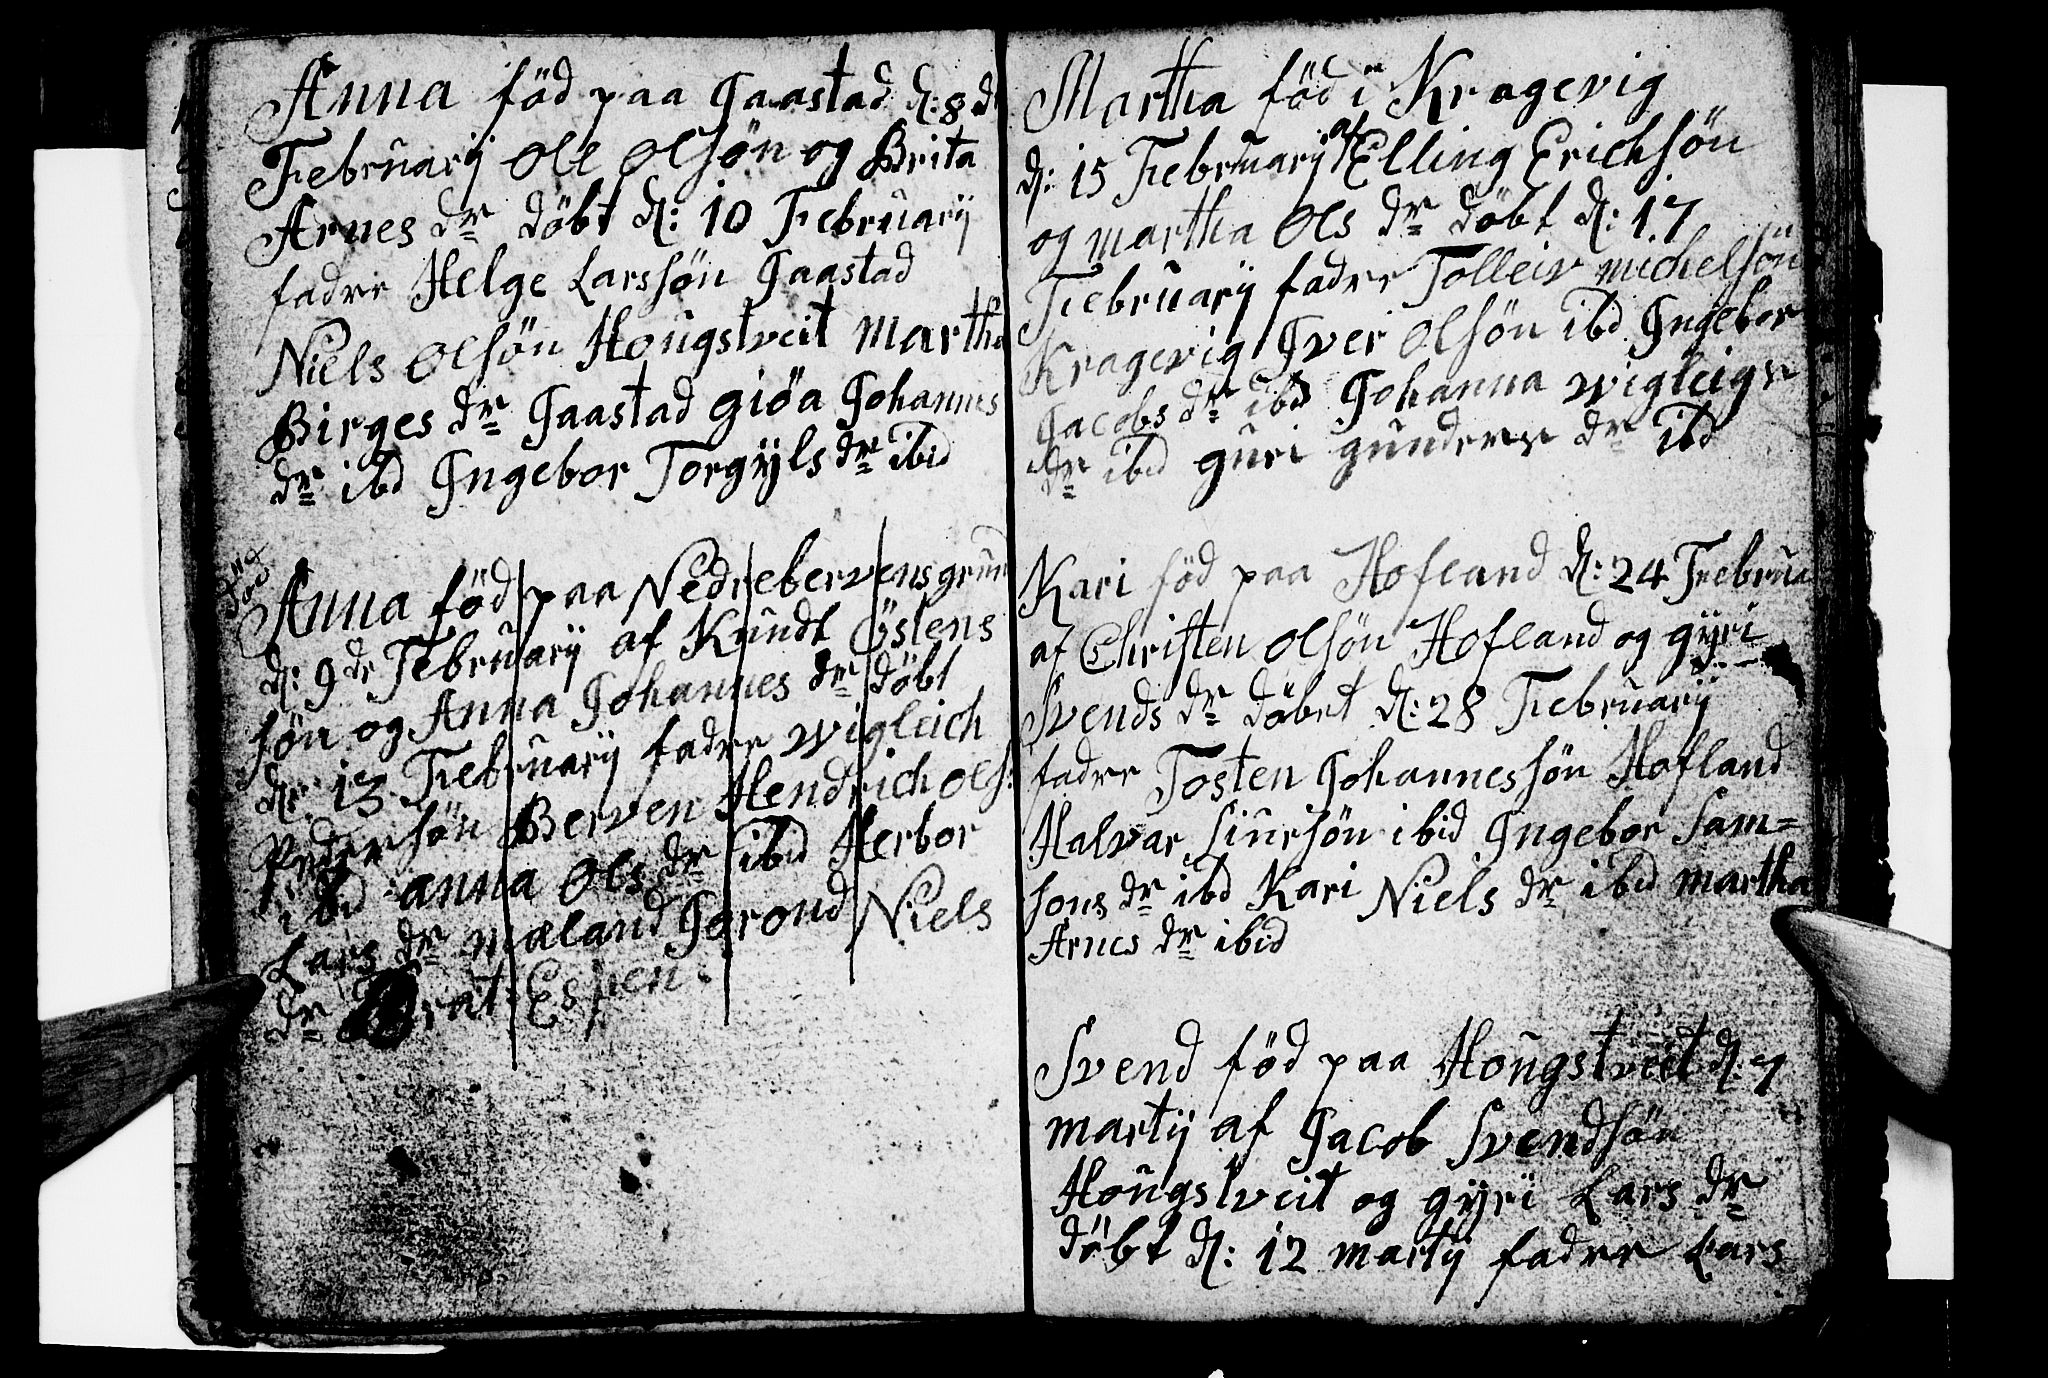 Anna föd paa Gaastad d: 8 d
Februarÿ Ole Olsön og Brita
Arnes dr döbt d: 10 Februarÿ
fadre Helge Larssön Gaastad
Niels Olsön Hoŭgstveit Martha
Birges dr Gaastad giöa Johannes
dr ibd Ingebor Torgÿls dr ibid
Anna föd paa Nedrebervens grund
d: 9 dr Februarÿ af Knudt Östens
sön og Anna Johannes dr döbt
d: 13 Februarÿ fadre Wigleich
Pedersön Berven Hendrich Ols:
ibid anna Ols dr ibid Herbor
Lars dr mæland Gorond Niels
dr Espen
Martha föd i Kragevig
d: 15 Februarÿ af Elling Erichsön
og martha Ols dr döbt d: 17
Februarÿ fadre Tolleiv michelsön
Kragevig Iver Olsön ibd Ingebor
Jacobs dr ibd Johanna Wigleigs
dr ibid guri gunders dr ibd
Kari föd paa Hofland d: 24 Februa
af Christen Olsön Hofland og gÿri
Svends dr döbet d: 28 Februarÿ
fadre Tosten Johannessön Hofland
Halvar Siursön ibid Ingebor Sam=
sons dr ibd Kari Niels dr ibid martha
Arnes dr ibid
Svend föd paa Hoŭgstveit d: 7
martÿ af Jacob Svendsön
Hoŭgstveit og gÿri Lars dr
döbt d: 12 martÿ fadre Lars